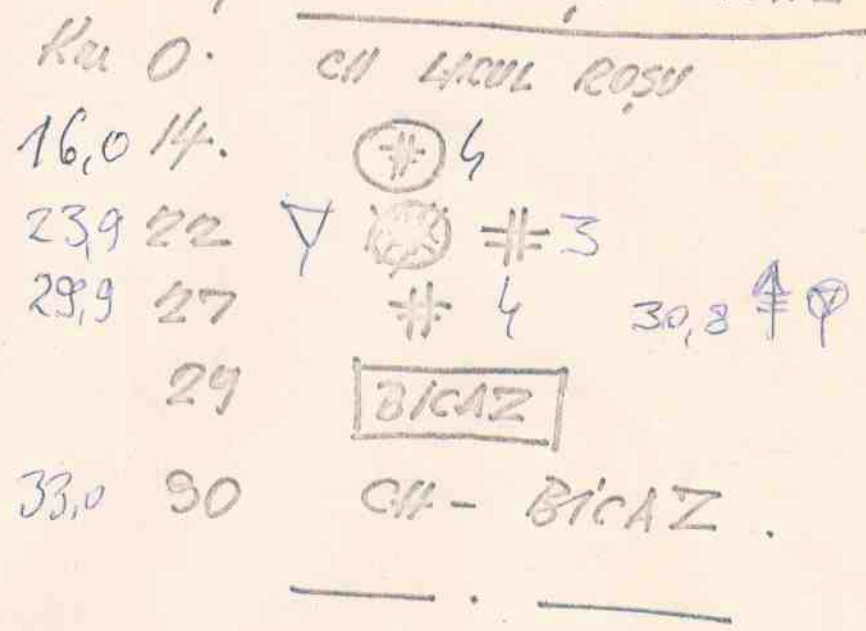 Km 0. CH LACUL ROȘU
16,0 14. 4
23,9 22 3
29,9 27 4 30,8
29 BICAZ
33,0 30 CH - BICAZ.